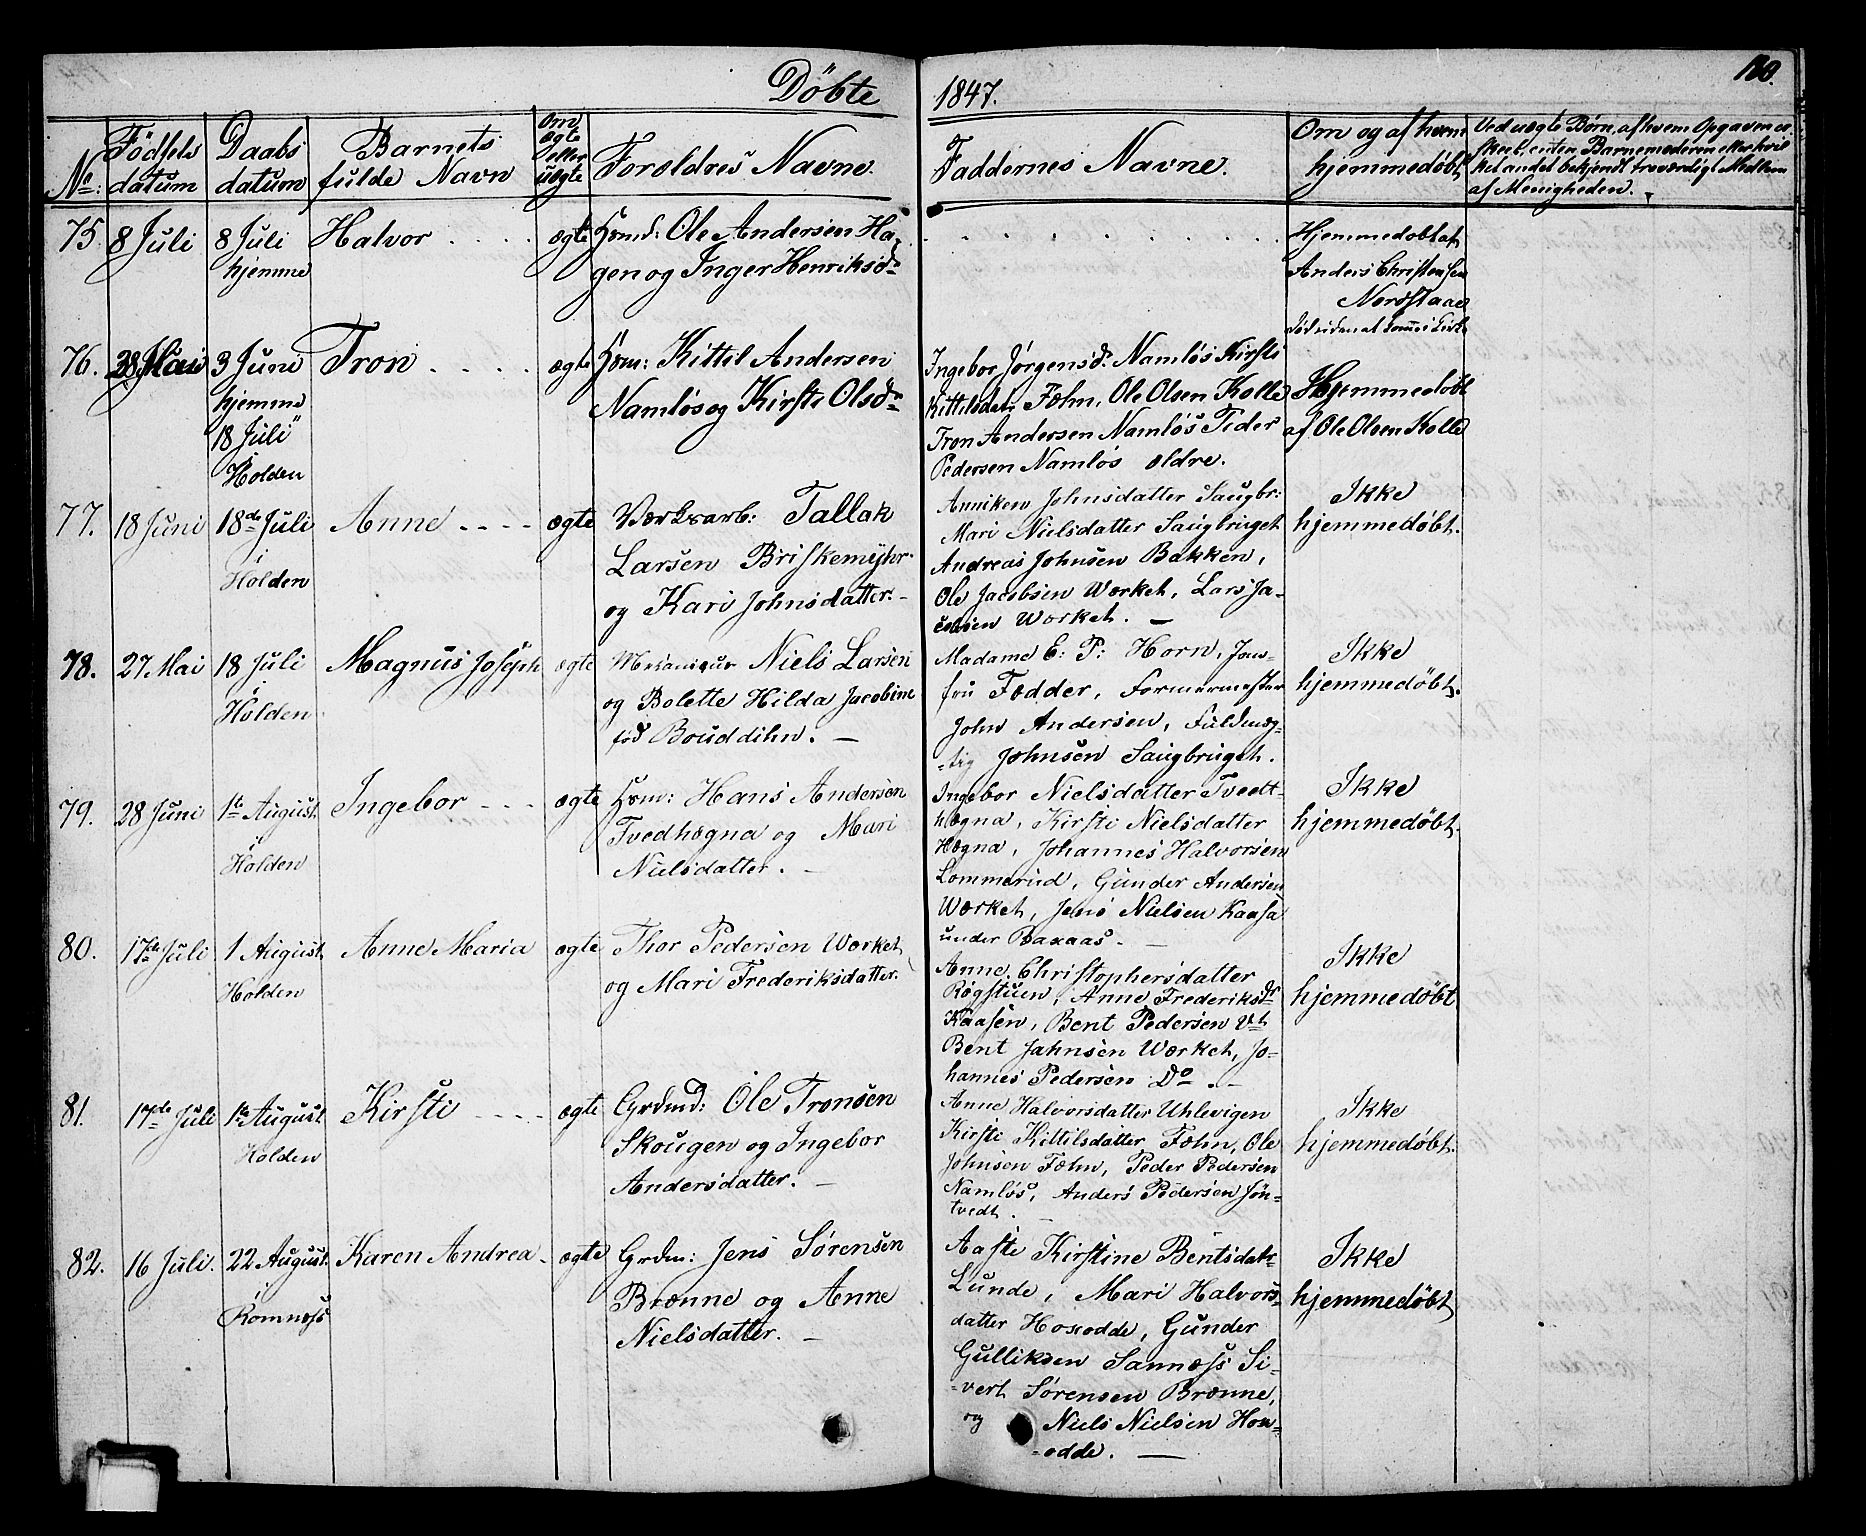 Döbte
1847.
120.
No:
Födsels datum
Daabs datum
Barnets fulde Navn
Om ægte eller uægte
Foroldres Navne.
Faddernes Navne.
Om og af hvem hjemmedøbt
Ved uægte Børn, af hvem Opgaven er
skeet, enten Barnemoderen eller hvil
ket andet bekjendt troværdigt Medlem
af Menigheden.
75. 8 Juli
8 Juli
hjemme
Halvor
ægte
Huusmd: Ole Andersen Ha-
gen og Inger Henriksdr
Hjemmedøbt af
Anders Christensen
Nordstaae
76. 28 Mai
3 Juni
hjemme
18 Juli
Holden
Tron
ægte
Huusm: Kittil Andersen
Namløs og Kirsti Olsdr
Ingebor Jørgensdr Namløs Kirsti
Kittilsdtr Fæhn, Ole Olsen Kolle
Tron Andersen Namløs Peder
Pedersen Namløs ældre.
Hjemmedøbt
af Ole Olsen Kolle
77. 18 Juni
18de Juli
i
Holden
Anne
ægte
Værksarb: Tallak
Larsen Briskemyhr
og Kari Johnsdatter.
Anniken Johnsdatter Saugbr:
Mari Nielsdatter Saugbruget
Andreas Johnsen Bakken,
Ole Jacobsen Wærket, Lars Ja-
cobsen Wærket.
Ikke
hjemmedøbt.
78. 27 Mai
18 Juli
i
Holden
Magnus Joseph
ægte
Mekanicus Niels Larsen
og Bolette Hilda Jacobine
fød Bouddihn.
Madame E: P: Horn, Jom-
fru Fædder, Formermester
John Andersen, Fuldmæg-
-tig Johnsen Saugbruget.
Ikke
hjemmedøbt.
79. 28 Juni
1te August.
i
Holden
Ingebor
ægte
Huusm: Hans Andersen
Tvedhægna og Mari
Nielsdatter.
Ingebor Nielsdatter Tvedt-
hægna, Kirsti Nielsdatter
Hægna, Johannes Halvorsen
Lommerud, Gunder Andersen
Wærket, Jens Nielsen Kaasa
under Baxaas.
Ikke
hjemmedøbt.
80. 17de Juli
1 August
Holden
Anne Maria
ægte
Thor Pedersen Wærket
og Mari Frederiksdatter.
Anne Christophersdatter
Røgstuen, Anne Frederiksdr
Kaasen, Bent Pedersen Vt
Bent Jahnsen Wærket, Jo-
hannes Pedersen Do.
Ikke
hjemmedøbt
81. 17de Juli
1te August
Holden
Kirsti
ægte
Grdmd: Ole Tronsen
Skougen og Ingebor
Andersdatter.
Anne Halvorsdatter Uhlevigen
Kirsti Kittilsdatter Fæhn, Ole
Johnsen Fæhn, Peder Pedersen
Namløs, Anders Pedersen Søn-
tvedt.
Ikke
hjemmedøbt.
82. 16 Juli.
22 August.
i
Romnæss
Karen Andrea
ægte
Grdm: Jens Sørensen
Brænne og Anne
Nielsdatter.
Aaste Kirstine Bentsdatr
Lunde, Mari Halvors-
datter Hoxodde, Gunder
Gulliksen Sannæss Si-
-vert Sørensen Brænne,
og Niels Nielsen Hox-
-odde.
Ikke
hjemmedøbt